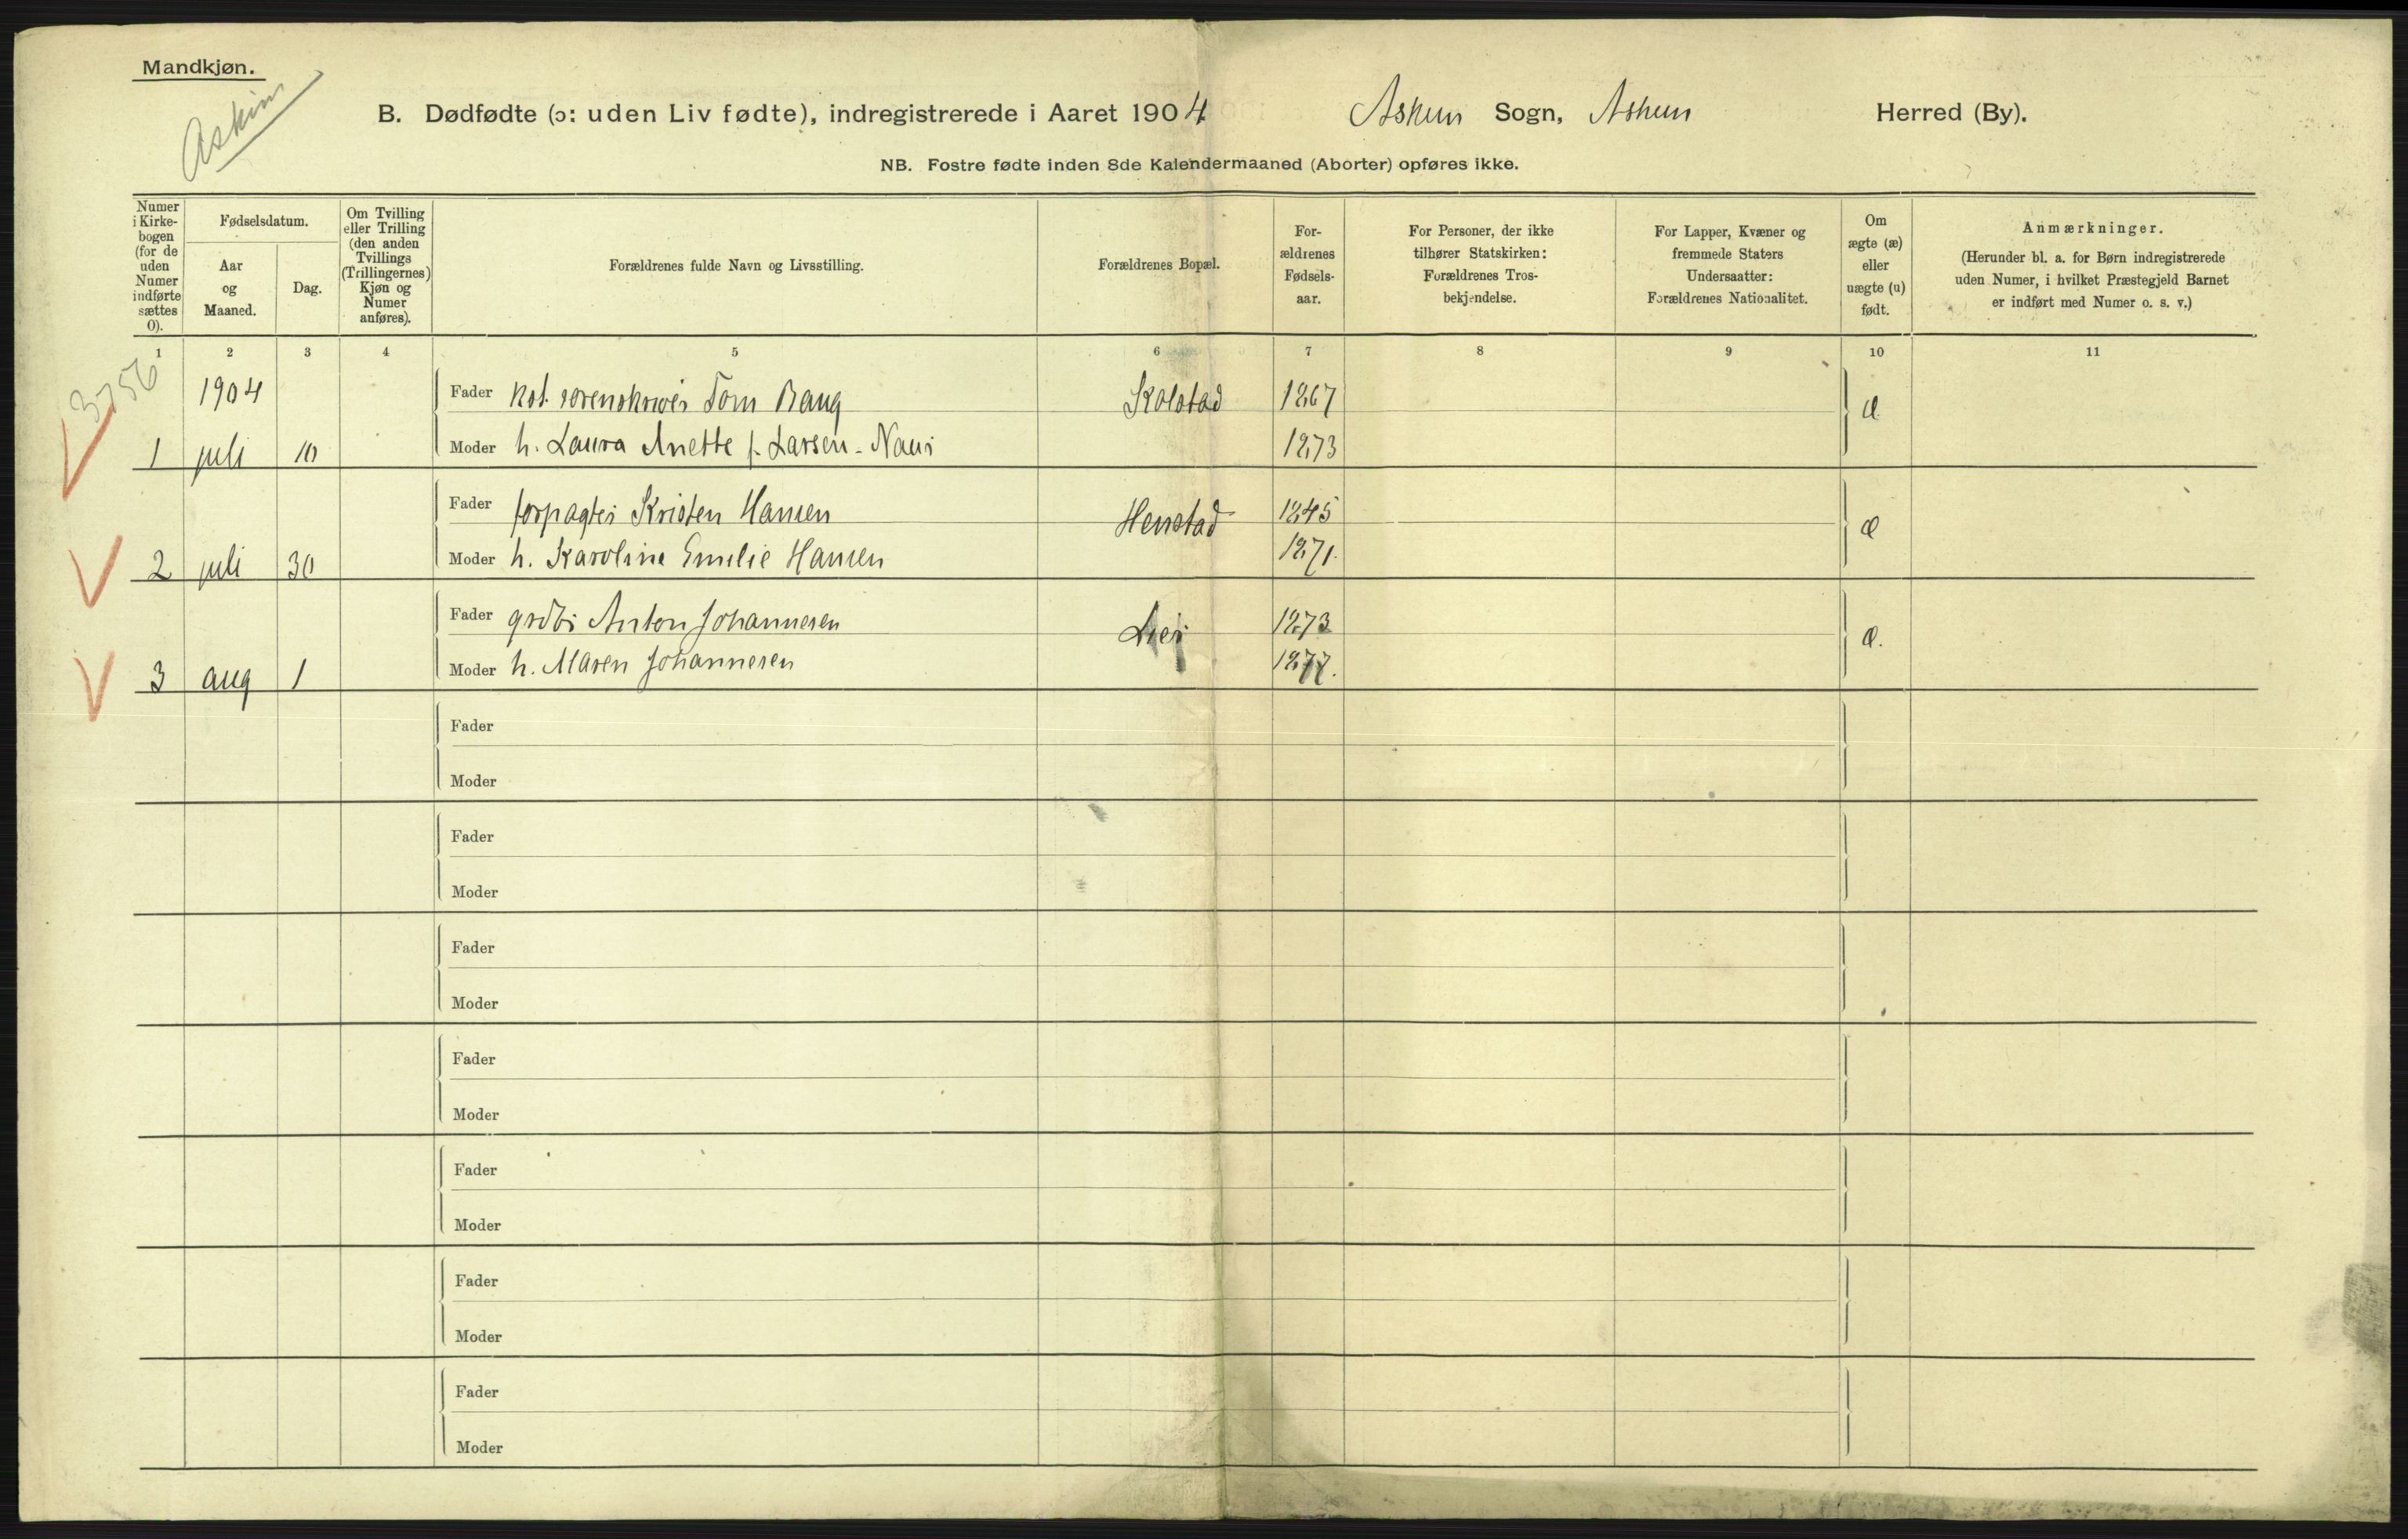 Mandkjøn.
Askim
B. Dødfødte (ɔ: uden Liv fødte), indregistrerede i Aaret 1904 Askim Sogn, Askim Herred (By).
NB. Fostre fødte inden 8de Kalendermaaned (Aborter) opføres ikke.
Numer
i Kirke-
bogen
(for de
uden
Numer
indførte
sættes
0).
Fødselsdatum.
Aar
og
Maaned.
Dag.
Om Tvilling
eller Trilling
(den anden
Tvillings
(Trillingernes)
Kjøn og
Numer
anføres).
Forældrenes fulde Navn og Livsstilling.
Forældrenes Bopæl.
For-
ældrenes
Fødsels-
aar.
For Personer, der ikke
tilhører Statskirken:
Forældrenes Tros-
bekjendelse.
For Lapper, Kvæner og
fremmede Staters
Undersaatter:
Forældrenes Nationalitet.
Om
ægte (æ)
eller
uægte (u)
født.
Anmærkninger.
(Herunder bl. a. for Børn indregistrerede
uden Numer, i hvilket Præstegjeld Barnet
er indført med Numer o. s. v.)
1 2 3 4 5 6 7 8 9 10 11
3756
1904 Fader kst. sorenskriver Tom Bang Kolstad 1867 æ
1 juli 10 Moder h. Laura Anette f. Larsen-Naur 1873
Fader forpagter Kristen Hansen Henstad 1845 æ
2 juli 30 Moder h. Karoline Emilie Hansen 1871.
Fader grdbr Anton Johannesen Lier 1873 æ.
3 aug 1 Moder h. Maren Johannesen 1877.
Fader
Moder
Fader
Moder
Fader
Moder
Fader
Moder
Fader
Moder
Fader
Moder
Fader
Moder